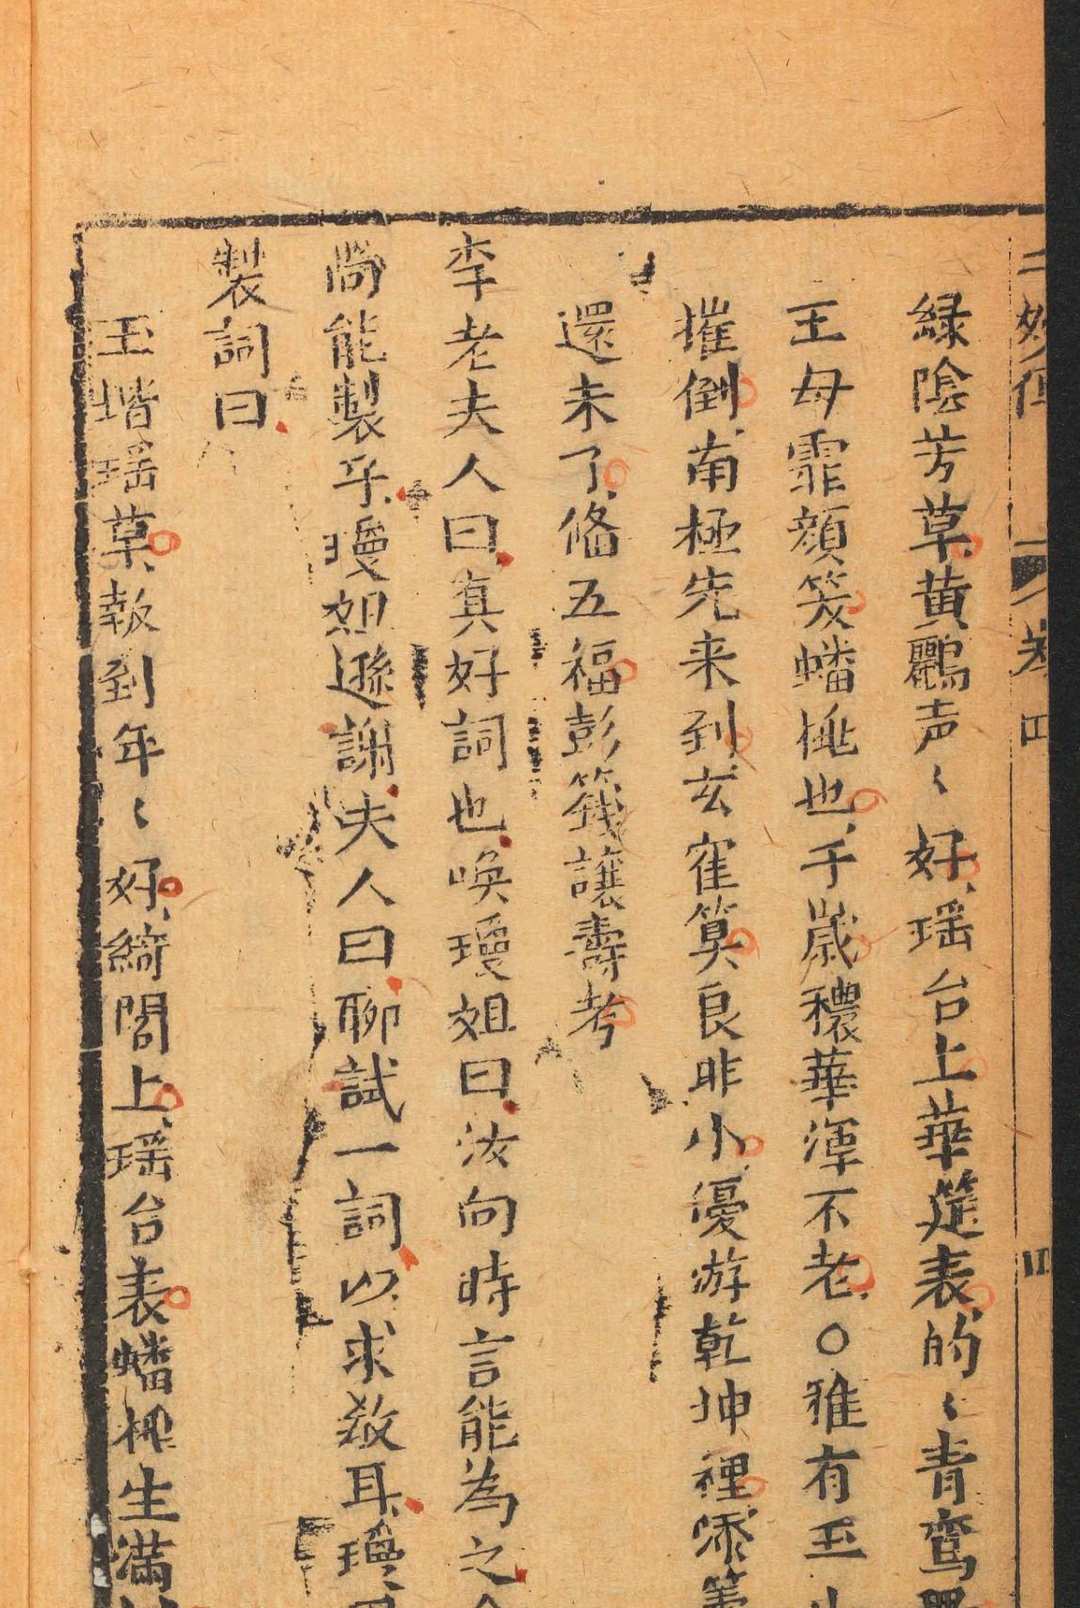 卷四
緑陰芳草黄鸝声〻好瑶台上華筵表的〻青鸞
王母霏顔笑蟠桃也千歳穠華渾不老○雅有玉
摧倒南極先来到玄崔筭良非小優游乾坤裡
還未了俻五福彭籛讓壽考
李老夫人曰真好詞也喚瓊姐曰汝向時言能為之
尚能製乎瓊姐遜謝夫人曰聊試一詞以求教耳瓊
製詞曰
玉堦瑶草報到年〻好綺閣上瑶台表蟠桃生满